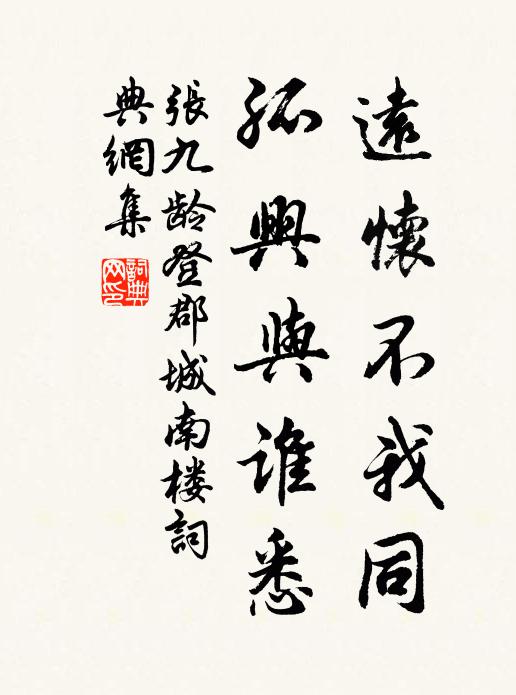 遠懷不我同
孤興與誰悉
張九齡登郡城南楼詞
典網集
詞典
网印